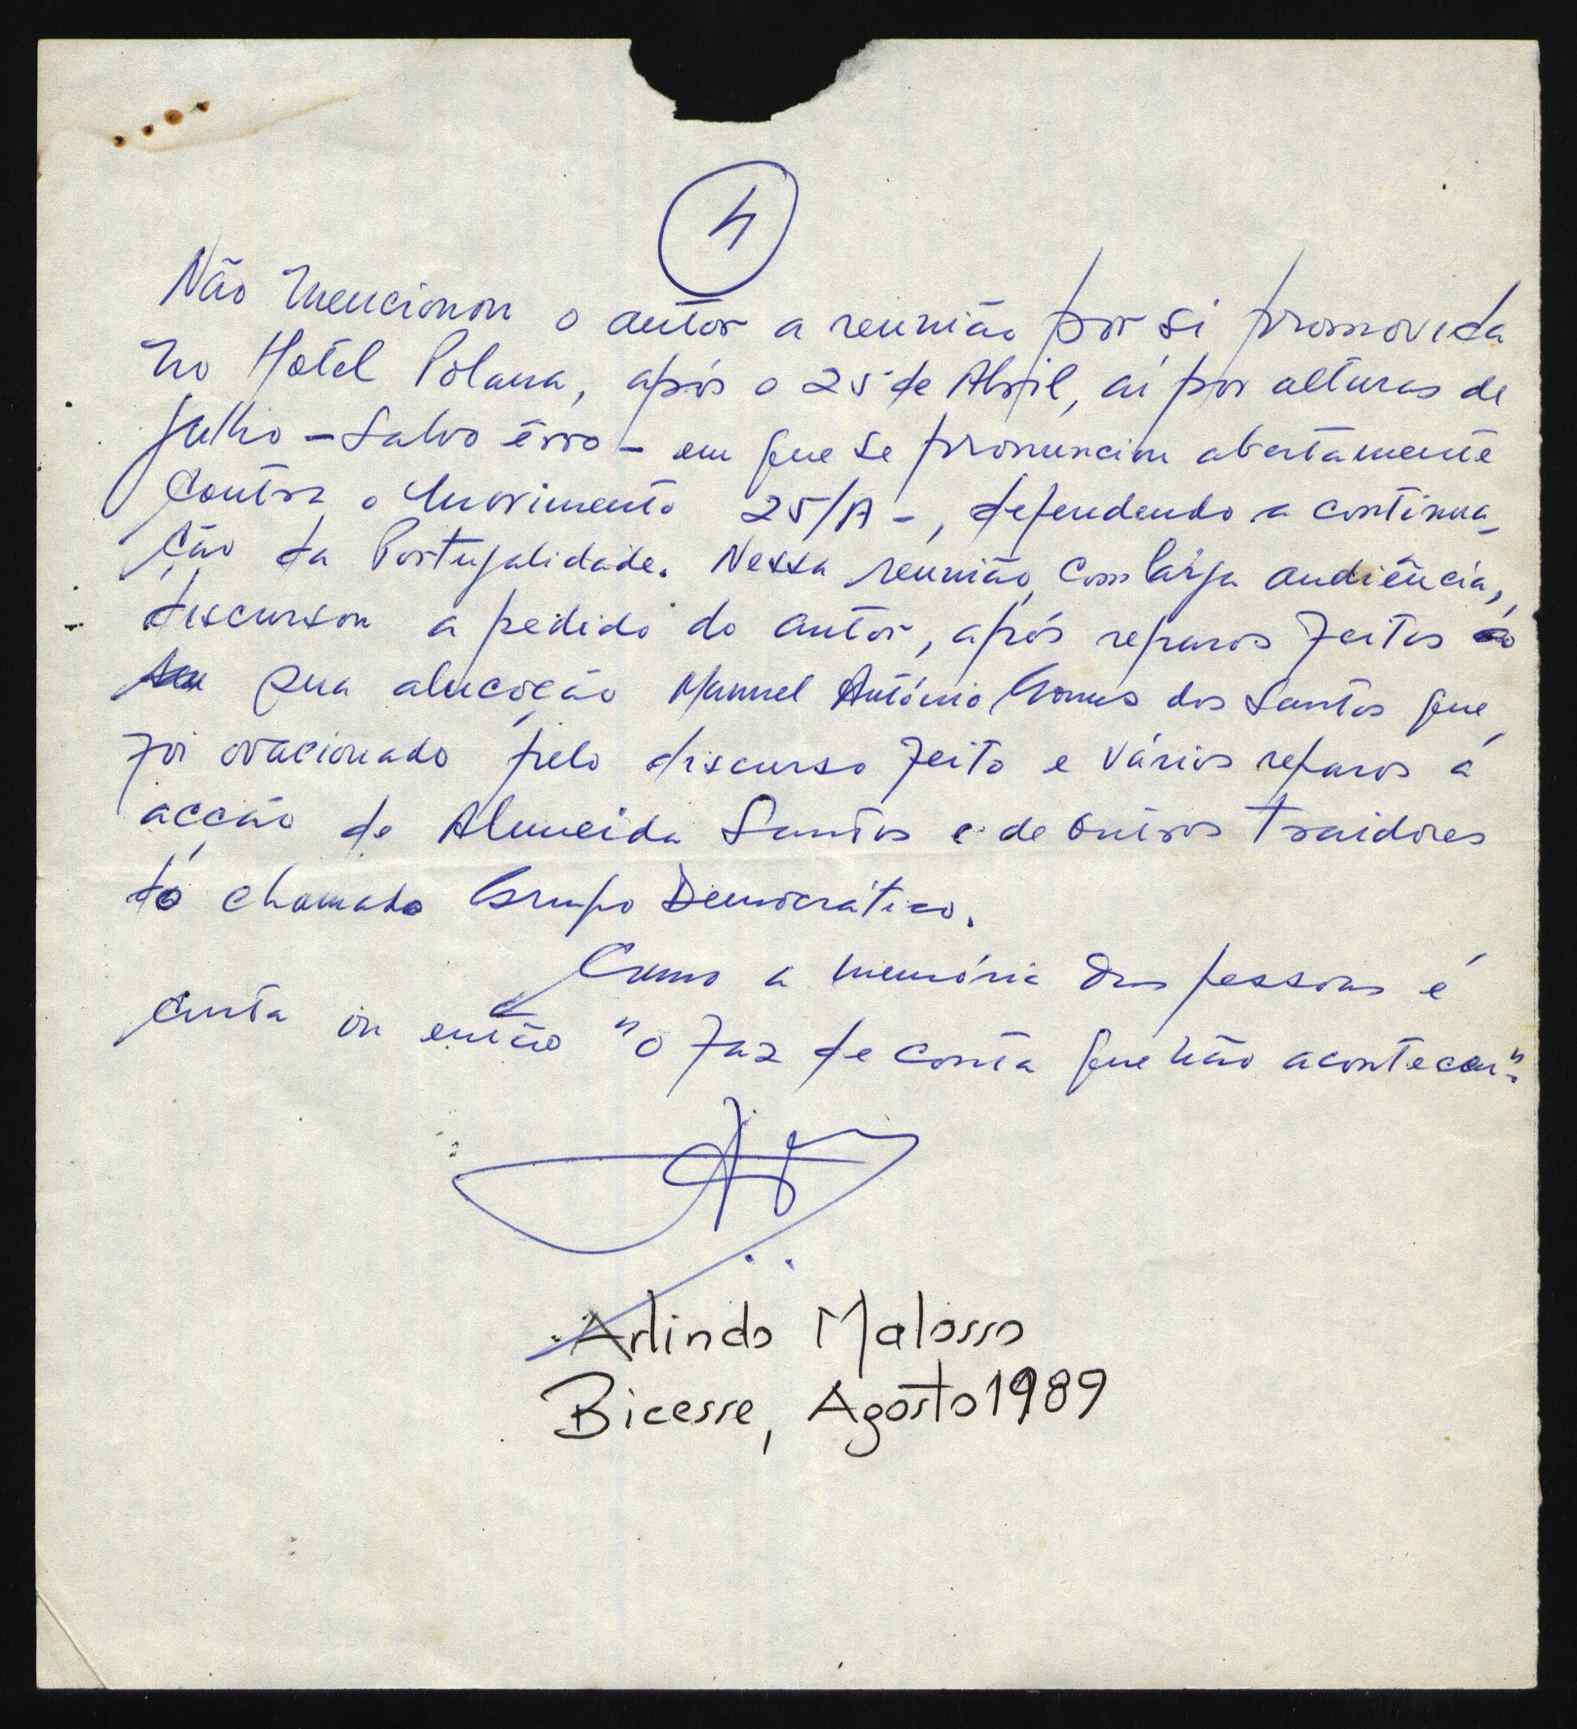 4
Não mencionou o autor a reunião por si promovida
no Hotel Polana, após o 25 de Abril, aí por alturas de
Julho - Salvo êrro - em que se pronunciou abertamente
contra o movimento 25/A -, defendendo a continua_
ção da Portugalidade. Nessa reunião, com larga audiência,
discursou a pedido do autor, após reparos feitos
sua alucoção Manuel António Gomes dos Santos que
foi ovacionado pelo discurso feito e vários reparos á
acção de Almeida Santos e de outros traidores
do chamado Grupo Democrático.
Como a memória das pessoas é
curta ou então "o faz de conta que não aconteceu".
Arlindo Malosso
Bicesse, Agosto 1989